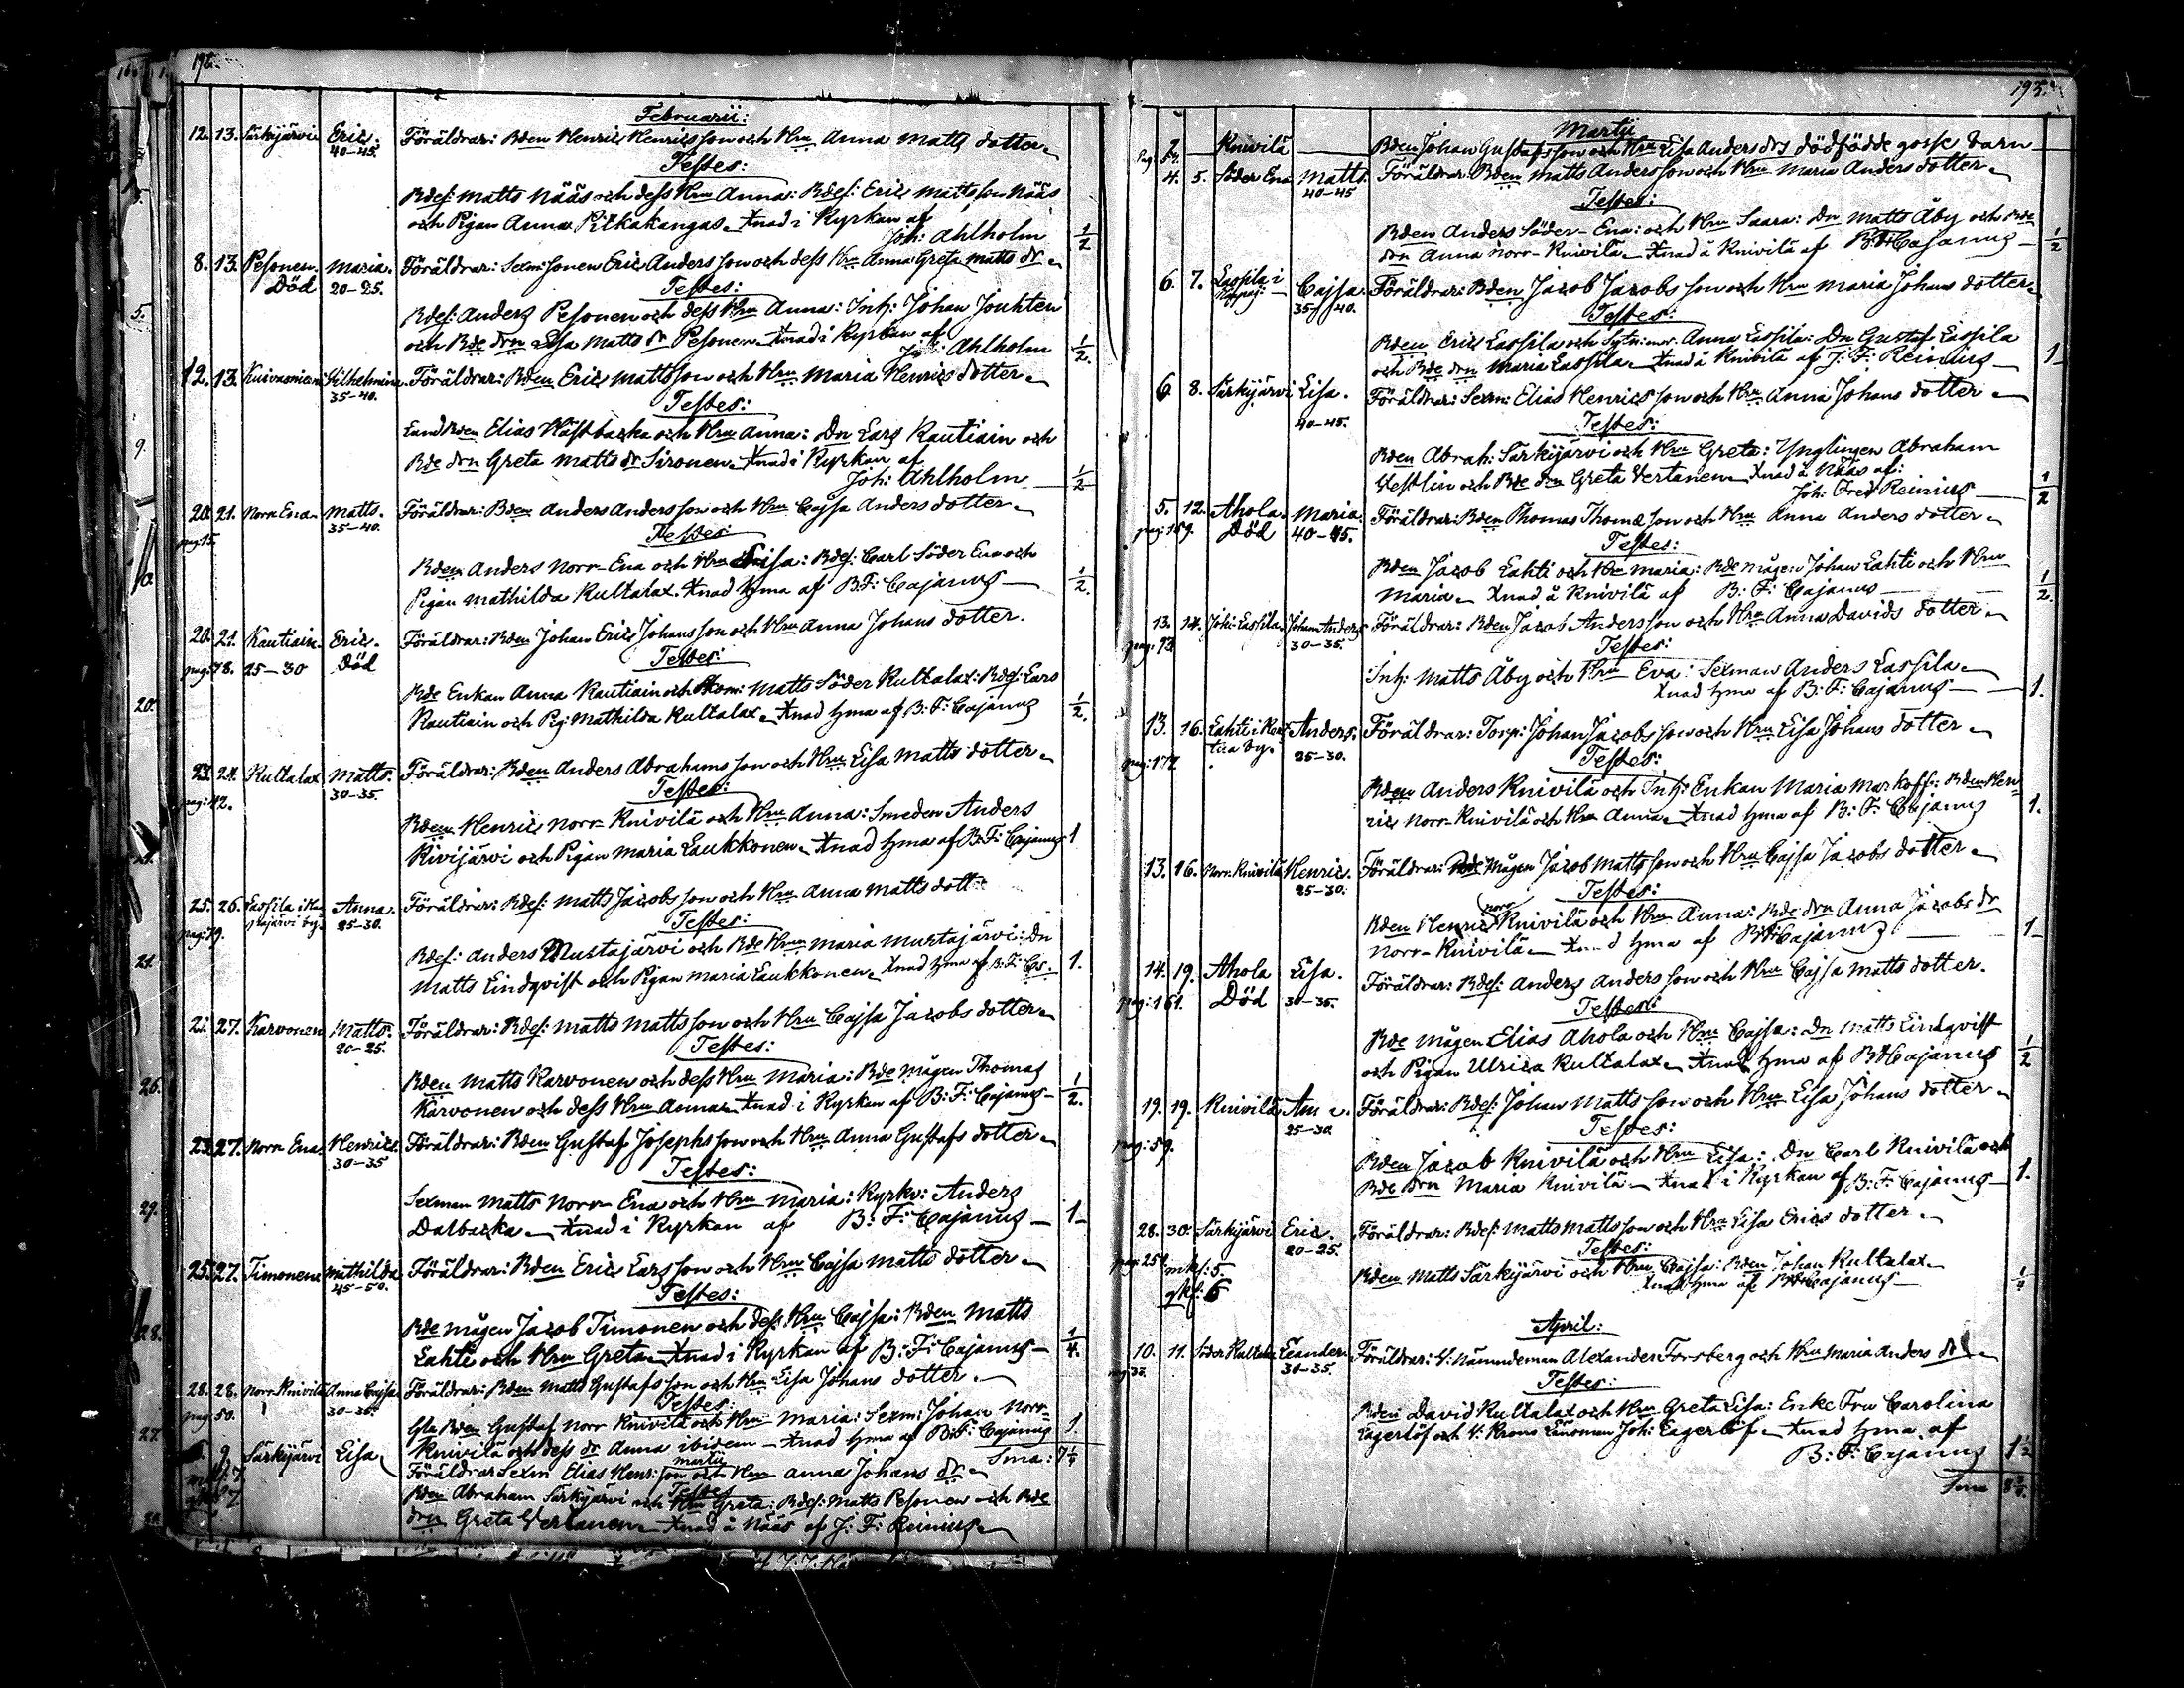 192.
Februarii:
12. 13. Särkijärvi Eric. Föräldrar: Bden Henric Henricsson och Hru Anna Matts dotter
40-45.
Testes:
Bdes: Matts Nääs och dess Hru Anna: Bdes: Eric Mattsson Nääs
och Pigan Anna Pitkakangas Xnad i Kyrkan af
Joh: Ahlholm 1/2
8. 13. Pesonen. Maria. Föräldrar: Sexm: sonen Eric Andersson och dess Hru Anna Greta Matts dr
Död 20-25.
Testes:
Bdes: Anders Pesonen och dess Hru Anna: Inh: Johan Jouhten
och Bde drn Lisa Matts dr Pesonen Xnad i Kyrkan af
Joh: Ahlholm 1/2.
12. 13. Wilhelmina. Föräldrar: Bden Eric Mattsson och Hru Maria Henrics dotter
35-40.
Testes:
Landbden Elias Hästbacka och Hru Anna: Dn Lars Rautiain och
Bde drn Greta Matts dr Sironen Xnad i Kyrkan af
Joh: Ahlholm 1/2
20. 21. Norr Ena. Matts. Föräldrar: Bden Anders Andersson och Hru Cajsa Anders dotter
pag: 15. 35-40.
Testes
Bden Anders Norr-Ena och Hru Lisa: Bdes: Carl Söder Ena och
Pigan Mathilda Kultalax. Xnad hma af B:F: Cajanus 1/2.
20. 21. Rautiain. Eric. Föräldrar: Bden Johan Eric Johansson och Hru Anna Johans dotter.
pag: 78. 25-30 Död
Testes:
Bde Enkan Anna Rautiain och Matts Söder Kultalax: Bdes: Lars
Rautiain och Pig: Mathilda Kultalax Xnad hma af B:F: Cajanus 1/2.
23. 24. Kultalax Matts. Föräldrar: Bden Anders Abrahamsson och Hru Lisa Matts dotter
pag: 42. 30-35.
Testes:
Bden Henric Norr-Knivilä och Hru Anna: Smeden Anders
Kivijärvi och Pigan Maria Laukkonen Xnad hma af B:F: Cajanus 1
25. 26. Lassila i Anna. Föräldrar: Bdes: Matts Jacobsson och Hru Anna Matts dott
pag: 79. 25-30.
Testes:
Bdes: Anders Mustajärvi och Bde Hru Maria Mustajärvi: Dn
Matts Lindqvist och Pigan Maria Laukkonen Xnad hma af B:F: Cs. 1.
27. Karvonen Matts. Föräldrar: Bdes: Matts Mattsson och Hru Cajsa Jacobs dotter
20-25.
Testes:
Bden Matts Karvonen och dess Hru Maria: Bde mågen Thomas
Karvonen och dess Hru Anna Xnad i Kyrkan af B:F: Cajanus 1/2.
23. 27. Norr Ena. Henric. Föräldrar: Bden Gustaf Josephsson och Hru Anna Gustafs dotter
30-35
Testes:
Sexman Matts Norr-Ena och Hru Maria: Kyrkv: Anders
Dalbacka Xnad i Kyrkan af B:F: Cajanus 1
25. 27. Timonen Mathilda Föräldrar: Bden Eric Larsson och Hru Cajsa Matts dotter
45-50.
Testes:
Bde mågen Jacob Timonen och dess Hru Cajsa: Bden Matts
Lahti och Hru Greta Xnad i Kyrkan af B:F: Cajanus 1/4.
28. 28. Norr Knivilä Anna Cajsa Föräldrar: Bden Matts Gustafsson och Hru Lisa Johans dotter
pag: 50. 30-35.
Testes:
Gla Bden Gustaf Norr Knivilä och Hru Maria: Sexm: Johan Norr-
Knivilä och dess dr Anna ibidem Xnad hma af B:F: Cajanus 1.
Martii Sma: 7 1/4
9. Särkijärvi Lisa Föräldrar Sexm Elias Henr: son och Hru Anna Johans dr
Testes
Bden Abraham Särkijärvi och Hru Greta: Bdes: Matts Pesonen och Bde
drn Greta Vertanen Xnad å Nääs af J:F: Reinius
193.
Martii
2. Knivilä Bden Johan Gustafsson och Hru Lisa Anders drs dödfödde gosse barn
4. 5. Söder Ena Matts. Föräldrar: Bden Matts Andersson och Hru Maria Anders dotter
40-45
Testes:
Bden Anders Söder-Ena: och Hru Saara: Dn Matts Åby och Bde
drn Anna Norr-Knivilä Xnad å Knivilä af B:F: Cajanus 1/2
6. 7. Lassila i Cajsa. Föräldrar: Bden Jacob Jacobsson och Hru Maria Johans dotter
35-40.
Testes:
Bden Eric Lassila och Anna Lassila: Dn Gustaf Lassila
och Bde drn Maria Lassila Xnad å Knivilä af J:F: Reinius 1
6 8. Särkijärvi Lisa. Föräldrar: Sexm: Elias Henricsson och Hru Anna Johans dotter
40-45.
Testes:
Bden Abrah: Särkijärvi och Hru Greta: Ynglingen Abraham
Westlin och Bde drn Greta Vertanen Xnad å Nääs af:
Joh: Fred Reinius 1/2
5. 12. Ahola. Maria. Föräldrar: Bden Thomas Thomæson och Hru Anna Anders dotter
pag: 159. Död 40-45.
Testes:
Bden Jacob Lahti och Hru Maria: Bde mågen Johan Lahti och Hru
Maria Xnad å Knivilä af B:F: Cajanus 1/2.
13. 14. Joh: Lassila Johan Anders Föräldrar: Bden Jacob Andersson och Hru Anna Davids dotter
30-35.
Testes:
Inh: Matts Åby och Hru Eva: Sexman Anders Lassila
Xnad hma af B:F: Cajanus 1.
13. 16. Lahti i Anders. Föräldrar: Torp: Johan Jacobsson och Hru Lisa Johans dotter
25-30.
Testes:
Bden Anders Knivilä och Inh: Enkan Maria Markoff: Bden Hen-
ric Norr-Knivilä och Hru Anna Xnad hma af B:F: Cajanus 1.
13. 16. Norr. Knivilä Henric. Föräldrar: Bde Mågen Jacob Mattsson och Hru Cajsa Jacobs dotter
25-30.
Testes:
Bden Henric Norr Knivilä och Hru Anna: Bde drn Anna Jacobs dr
Norr-Knivilä Xnad hma af B:F: Cajanus 1
14. 19. Ahola Lisa. Föräldrar: Bdes: Anders Andersson och Hru Cajsa Matts dotter.
pag: 161. Död 30-35.
Testes:
Bde mågen Elias Ahola och Hru Cajsa: Dn Matts Lindqvist
och Pigan Ulrica Kultalax Xnad hma af B:F: Cajanus 1/2
19. 19. Knivilä Föräldrar: Bdes: Johan Mattsson och Hru Lisa Johans dotter
pag: 59. 25-30.
Testes:
Bden Jacob Knivilä och Hru Lisa: Dn Carl Knivilä och
Bde drn Maria Knivilä Xnad i Kyrkan af B:F: Cajanus 1.
28. 30. Särkijärvi Eric. Föräldrar: Bdes: Matts Mattsson och Hru Lisa Erics dotter
20-25.
Testes:
mk: 5. Bden Matts Särkijärvi och Hru Cajsa: Bden Johan Kultalax
qk: 6 Xnad hma af B:F: Cajanus
April:
10. 11. Söder Kultalax Leander Föräldrar: V: Nämndeman Alexander Forsberg och Hru Maria Anders dr
30-35.
Testes:
Bden David Kultalax och Hru Greta Lisa: Enke Fru Carolina
Lagerlöf och V: Krono Länsman Joh: Lagerlöf Xnad hma af
B:F: Cajanus 1 1/2
Sma